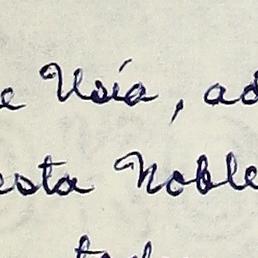 e Usía, ad
esta Noble